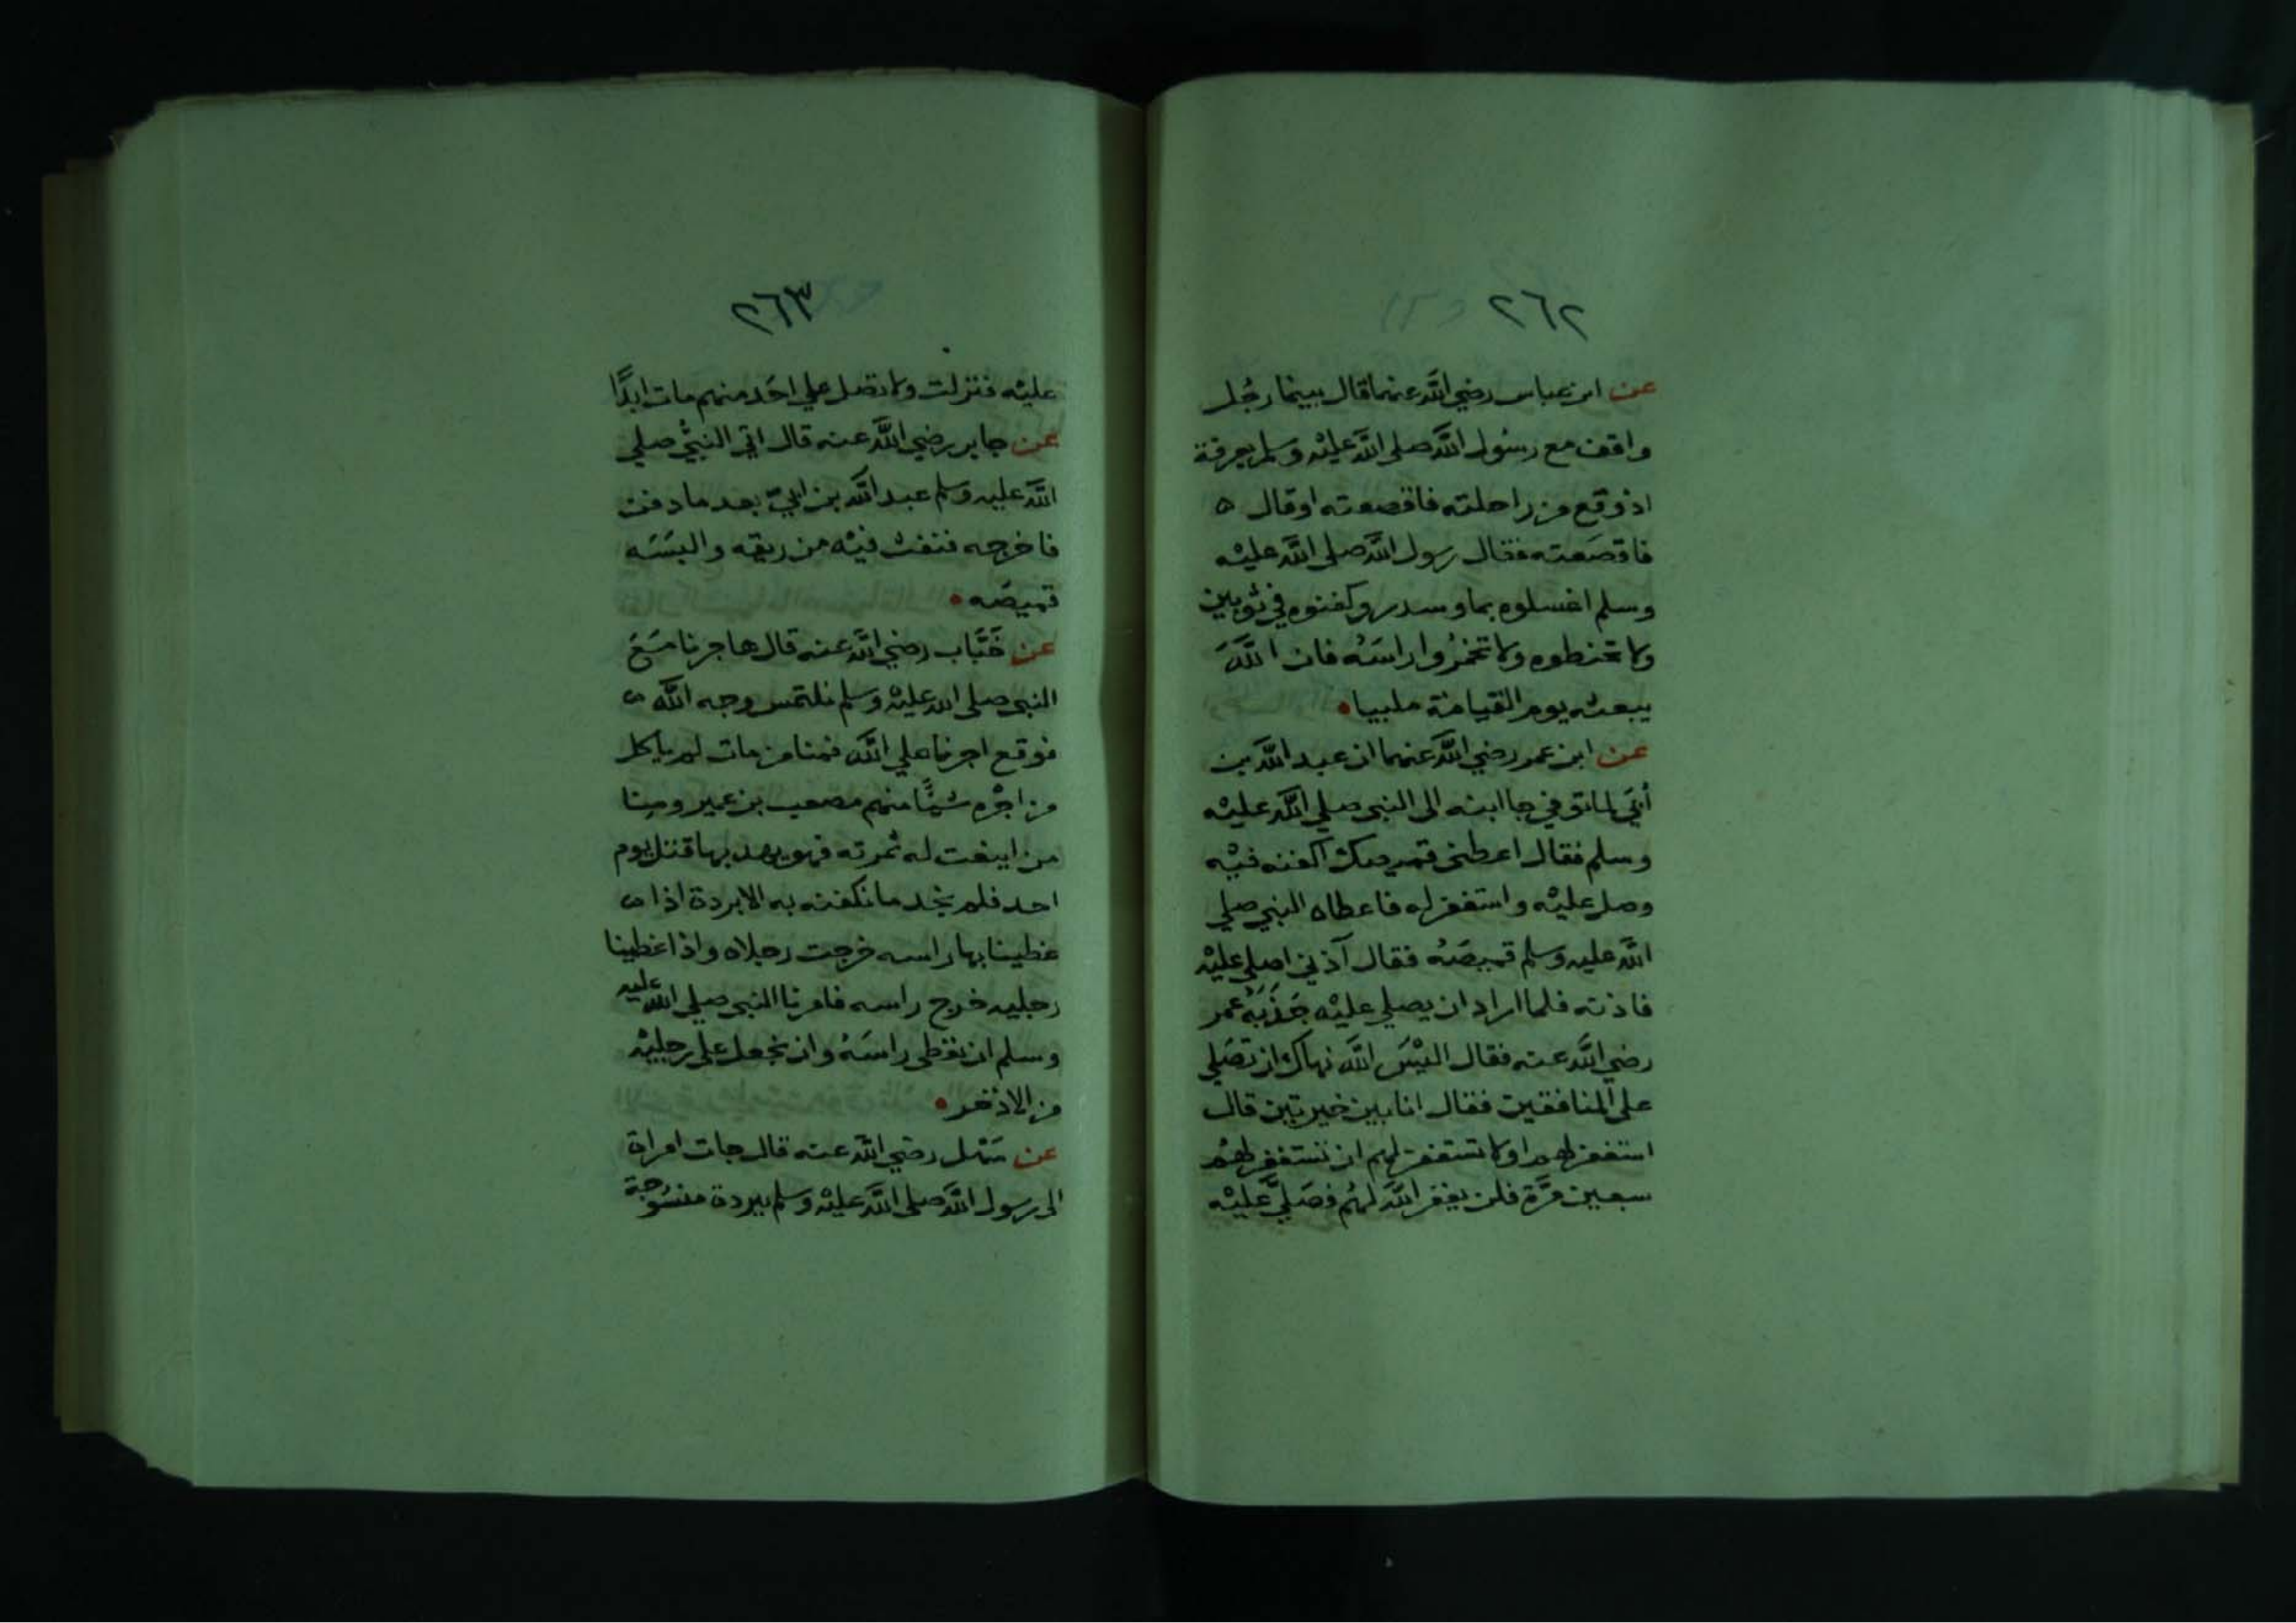 ٢٦٢
عن ابن عباس رضي الله عنهما قال بينما رجُل
واقف مع رسُول الله صلى الله عليْه وسلم بعرفة
اذ وقع من راحلته فاقصعته او قال
فاقصَعته فقال رسول الله صلى الله عليْه
وسلم اغسلوه بماو سدر وكفنوه في ثوبين
ولا تحنطوه ولا تخمرُوا راسَهُ فان اللهَ
يبعثه يوم القيامة ملبيا
عن ابن عمر رضي الله عنهما ان عبد الله بن
أبَي لما توفي جا ابنه الى النبي صلي الله عليْه
وسلم فقال اعطني قميصك اكفنه فيْه
وصل عليْه واستغفر له فاعطاه النبي صلي
الله عليه وسلم قميصَهُ فقال آذني اصلي عليْه
فاذنه فلما اراد ان يصلي عليْه جَذَبَهُ عمر
رضي الله عنه فقال اليْسَ الله نهاك ان تصَلي
على المنافقين فقال انا بين خيرتين قال
استغفر لهم او لا تستغفر لهم ان تستغفر لهُم
سبعين مرَّة فلن يغفر الله لهُم فصَليَّ عليْه
٢٦٣
عليْه فنزلت ولا تصل علي احَد منهم مات ابدًا
عن جابر رضي الله عنه قال اتي النبيُّ صلي
الله عليه وسلم عبد الله بن ابيّ بعد ما دفن
فاخرجه فنفث فيْه من ريقه والبسَه
قميصَه
عن خَبَّاب رضي الله عنه قال هاجرنا مَعَ
النبي صلى الله عليْه وسلم نلتمس وجه الله
فوقع اجرنا علي الله فمنا من مات لم ياكل
من اجْره شيئًا منهم مصعب بن عمير ومنا
من اينعت له ثمرته فهو يهدبها قتل يوم
احد فلم نجد ما نكفنه به الا بردة اذا
غطينا بها راسه خرجت رجلاه واذا غطينا
رجليه خرج راسه فامرنا النبي صلي الله عليه
وسلم ان نغطي راسَهُ وان نجعل على رجليْه
من الاذخر
عن سَهْل رضي الله عنه قال جات امراة
الى رسول الله صلى الله عليْه وسلم ببردة منسُوجة